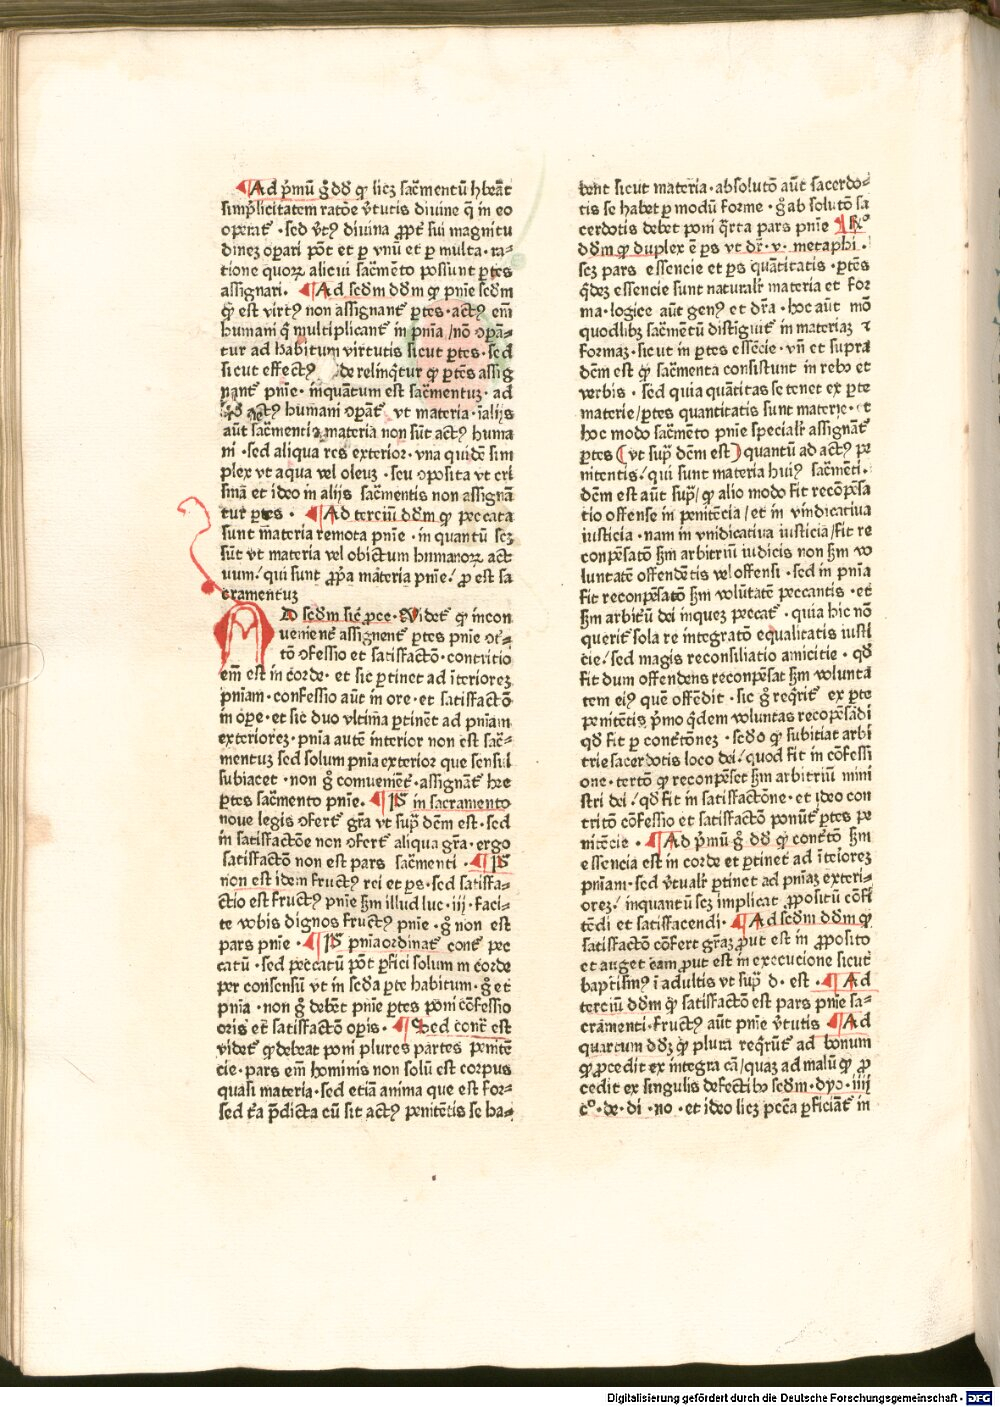 Ad pͥmū g̊ dd ꝙ licꝫ sac̄mentū hẽat
simplicitatem ratōe v̓tutis diuine q̄ in eo
operat᷑ · sed v̓tꝰ diuina ꝓpt̓ sui magnitu
dinez oꝑari pōt et ꝑ vnū et ꝑ multa · ra⸗
tione quoꝝ alicui sac̄mēto possunt ꝑtes
assignari · Ad scd̄m dd̄m ꝙ pnīe scd̄m
ꝙ est virtꝰ non assignant᷑ ꝑtes · actꝰ em̄
humani q̄ multiplicant᷑ in pnīa /nō ↄꝑā⸗
tur ad habitum virtutis sicut ꝑtes · sed
sicut effectꝰ de relinq̄tur ꝙ ꝑtēs assig
nant᷑ pnīe · inquantum est sac̄mentuꝫ · ad
actꝰ humani ↄꝑāt᷑ vt materia · ī alijs
aūt sac̄mentis materia non sūt actꝰ huma
ni · sed aliqua res exterior · vna quidē sim
plex vt aqua vel oleuꝫ · seu ↄposita vt cri
smā et ideo in alijs sac̄mentis non assignā
tur ꝑtes · Ad terciū dd̄m ꝙ peccata
sunt m̄ateria remota pnīe · in quantū scꝫ
sūt vt materia vel obiectum humanoꝝ act
uum/ qui sunt ꝓp̄a māteria pnīe/ ꝓ est sa
cramentuꝫ
AD scd̄m sic ꝓce · Uidet᷑ ꝙ incon
uenient̓ assignent᷑ ꝑtes pnīe ↄt̓⸗
tō ↄfessio et satisfactō · contritio
em̄ est in corde · et sic ꝑtinet ad īterioreꝫ
pniam · confessio aūt in ore · et satisfactō
in oꝑe · et sic duo vltīma ꝑtinēt ad pniam
exterioreꝫ · pnīa autē interior non est sac̄⸗
mentuꝫ sed solum pnīa exterior que sensui
subiacet · non g̊ conuenient̓ · assignāt᷑ hee
ꝑtes sac̄mento pnīe. Pᵗ in sacramento
noue legis ↄfert᷑ gr̄a vt sup̄ dc̄m est · sed
in satisfactōe non ↄfert᷑ aliqua gr̄a · ergo
satisfactō non est pars sac̄menti · Pᵗ
non est idem fructꝰ rei et ꝑs · sed satisfa⸗
ctio est fructꝰ pnīe ẜm illud luc · iij · faci⸗
te vobis dignos fructꝰ pnīe · g̊ non est
pars pnīe · Pᵗ pnīa ordinat᷑ cont̓ pec
catū · sed peccatū pōt ꝑfici solum in corde
per consensū vt in sc̄da ꝑte habitum · g̊ et
pnīa · non g̊ debēt pnīe ꝑtes poni cōfessio
oris et̓ satisfactō oꝑis · Sed cont̓ est
videt᷑ ꝙ debeat poni plures partes penitē
cie · pars em̄ hominis non solū est corpus
quasi materia · sed etiā anima que est for⸗
sed t̓a p̄dicta cū sit actꝰ penitētis se ha⸗
bent sicut materia · absolutō aūt sacerdo⸗
tis se habet ꝑ modū forme · g̊ absolutō sa
cerdotis debet poni q̄rta pars pnīe Rº
dd̄m ꝙ duplex ē ꝑs vt dr̄ · v · metaphi ·
scꝫ pars essencie et ꝑs quātitatis · ꝑtēs
q̄deꝫ essencie sunt naturalr̓ materia et for
ma · logice aūt genꝰ et dr̄a · hoc aūt mō
quodlibꝫ sac̄mētū distiguit᷑ in materiaꝫ ⁊
formaꝫ · sicut in ꝑtes essēcie · vn̄ et supra
dēm est ꝙ sac̄menta consistunt in rebꝰ et
verbis · sed quia quātitas se tenet ex ꝑte
materie/ꝑtes quantitatis sunt materie · et
hoc modo sac̄mēto pnīe specialr̓ assignāt᷑
ꝑtes (vt sup̄ dēm est) quantū ad actꝰ pe
nitentis/ qui sunt materia huiꝰ sac̄mēti ·
dēm est aūt sup̄/ ꝙ alio modo fit recōpēsa
tio offense in penitēcia/et in vindicatiua
iusticia · nam in vnidicatiua iusticia/fit re
conpēsatō ẜm arbitriū iudicis non ẜm vo
luntatē offendētis vel offensi · sed in pnīa
fit reconpēsatō ẜm volūtatē peccantis · et
ẜm arbit̓ū dei inqueꝫ peccat᷑ · quia hic nō
querit᷑ sola re integratō equalitatis iusti
cie/ sed magis reconsiliatio amicitie · qd̄
fit dum offendens reconpēsat ẜm volunta
tem eiꝰ quē offēdit · sic g̊ req̄rit᷑ ex ꝑte
penitētis pͥmo q̄dem voluntas recopēsādi
qd̄ fit ꝑ cont̓tōneꝫ · sc̄do ꝙ subiciat arbi
trie sacerdotis loco dei/ quod fit in cōfessi
one · tertō ꝙ recōpēset ẜm arbitriū mini
stri dei/ qd̄ fit in satisfactōne · et ideo con
tritō cōfessio et satisfactō ponūt᷑ ꝑtes pe
nitēcie · Ad pͥmū g̊ dd ꝙ cont̓tō ẜm
essencia est in corde et ꝑtinet ad īterioreꝫ
pniam · sed v̓tualr̓ ꝑtinet ad pnīaꝫ exteri⸗
oreꝫ/ inquantū scꝫ implicat ꝓpositū cōfi
tēdi et satisfacendi · Ad scd̄m dd̄m ꝙ
satisfactō cōfert gr̄aꝫ ꝓut est in ꝓposito
et auget eam ꝓut est in execucione sicut
baptismꝰ ī adultis vt sup̄ d · est · Ad
terciū dd̄m ꝙ satisfactō est pars pnīe sa⸗
cramenti · fructꝰ aūt pnīe v̓tutis Ad
quartum dd̄ꝫ ꝙ plura req̄rūt᷑ ad bonum
ꝙ ꝓcedit ex integra cā/quaꝫ ad malū ꝙ ꝓ
cedit ex singulis defectibꝰ scd̄m · dyo · iiij
cº · de · di · no · et ideo licꝫ pccā ꝑficiāt᷑ in
Digitalisierung gefördert durch die Deutsche Forschungsgemeinschaft - DFG